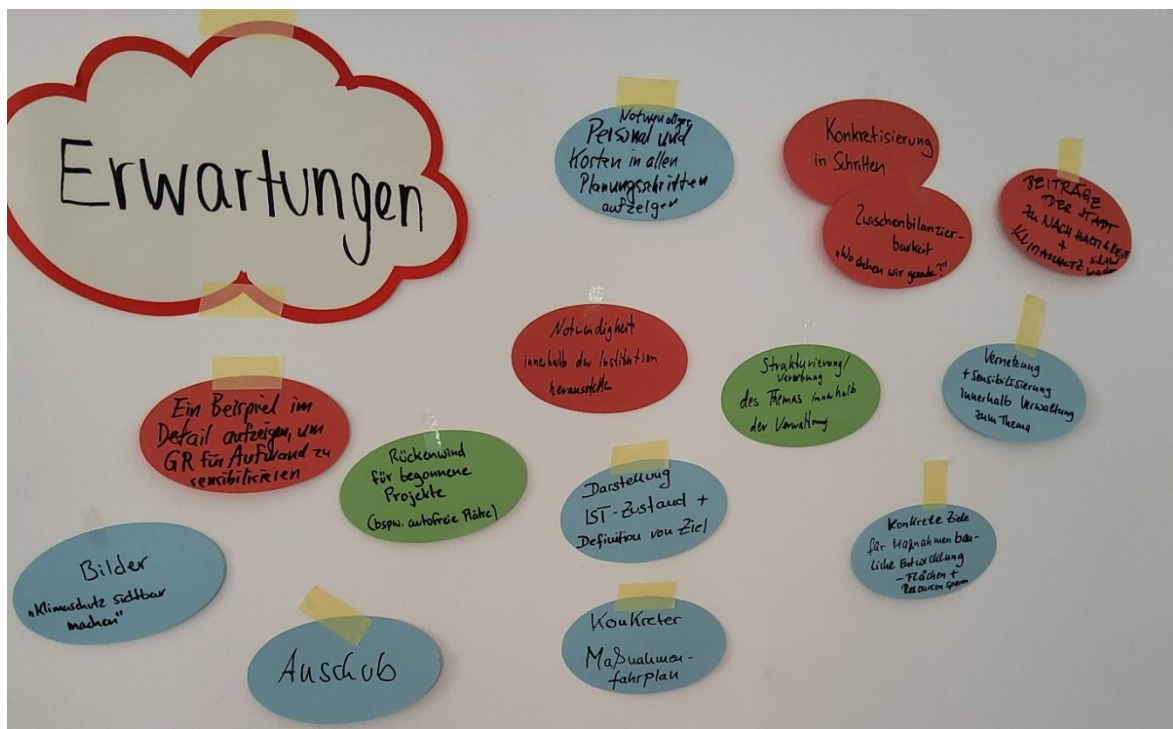 Erwartungen
Notwendiges
Personal und
Kosten in allen
Planungsschritten
aufzeigen
Konkretisierung
in Schritten
Zwischenbilanzier-
barkeit
„Wo stehen wir gerade?"
BEITRÄGE
DER STADT
ZU NACHHALTIGKEIT
+
KLIMASCHUTZ sichtbar
machen
Notwendigkeit
innerhalb der Institution
herausstellen
Strukturierung/
des Themas innerhalb
der Verwaltung
Vernetzung
+ Sensibilisierung
innerhalb Verwaltung
zum Thema
Ein Beispiel im
Detail aufzeigen, um
GR für Aufwand zu
sensibilisieren
Rückenwind
für begonnene
Projekte
(bspw. autofreie Plätze)
Darstellung
IST-Zustand +
Definition von Ziel
Konkrete Ziele
für Maßnahmen bau-
liche Entwicklung
– Flächen +
Resourcen sparen
Bilder
„Klimaschutz sichtbar
machen"
Anschub
Konkreter
Maßnahmen-
fahrplan